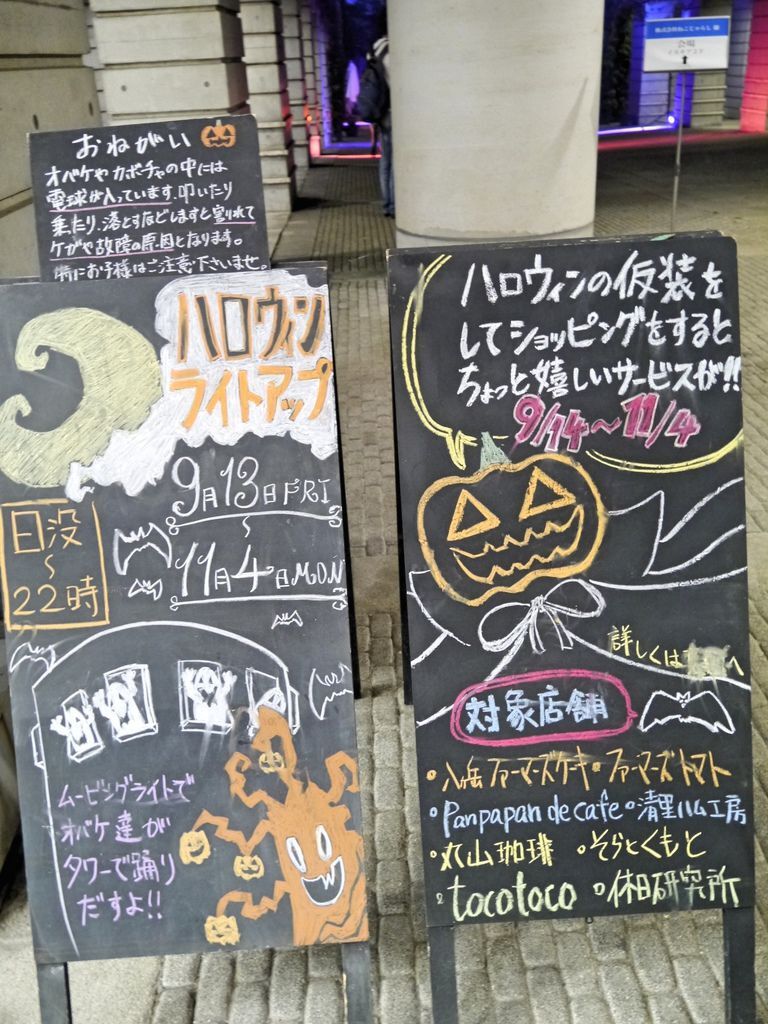 おねがい
オバケや カボチャの中には
電球が入っています。叩いたり
乗たり、落とすなどしますと割れて
ケガや故障の原因となります。
特にお子様はご注意下さいませ。
ハロウィン
ライトアップ
9月13日FRI
～
11月4日MON
日没
～
22時
ムービングライトで
オバケ達が
タワーで踊り
だすよ!!
ハロウィンの仮装を
してショッピングをすると
ちょっと嬉しいサービスが!!
9/14～11/4
詳しくは
へ
対象店舗
・八ヶ岳ファーマーズケーキ・ファーマーズトマト
・Panpapan de cafe・清里ハム工房
・丸山珈琲 ・そらとくもと
・tocotoco ・休日研究所
会場
↑